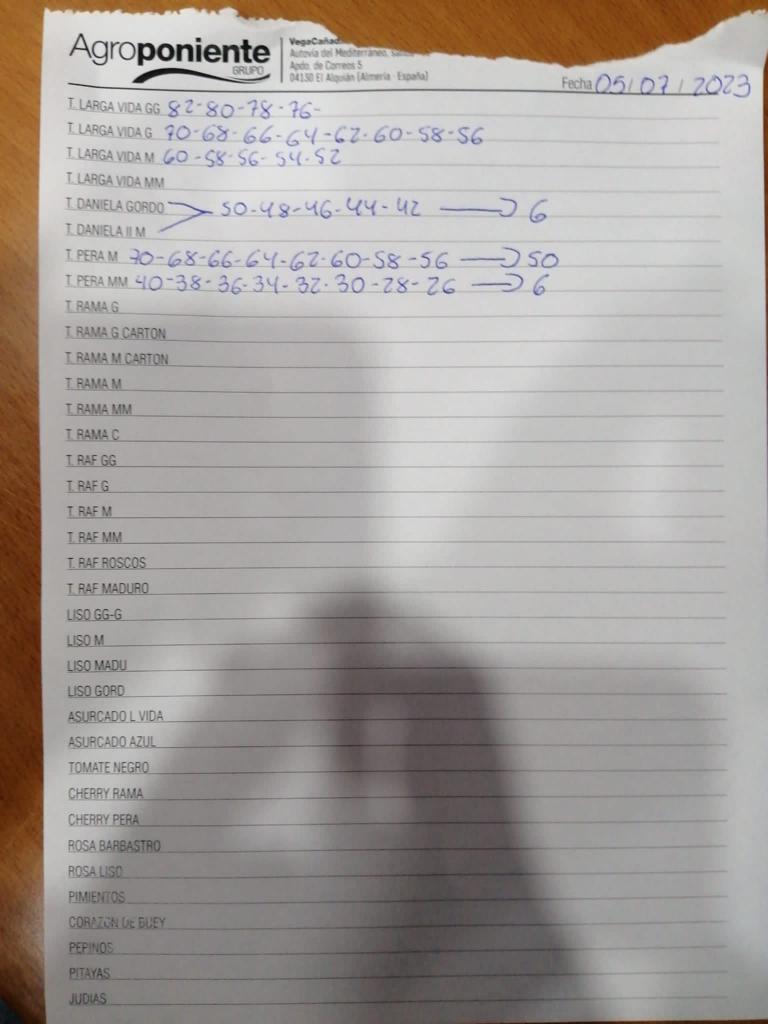 Agroponiente
GRUPO
VegaCañad
Autovía del Mediterráneo,
Apdo. de Correos 5
04130 El Alquián (Almería - España)
Fecha 05/07/2023
T. LARGA VIDA GG 82-80-78-76-
T. LARGA VIDA G 70-68-66-64-62-60-58-56
T. LARGA VIDA M 60-58-56-54-52
T. LARGA VIDA MM
T. DANIELA GORDO 50-48-46-44-42 → 6
T. DANIELA II M
T. PERA M 70-68-66-64-62-60-58-56 → 50
T. PERA MM 40-38-36-34-32-30-28-26 → 6
T. RAMA G
T. RAMA G CARTON
T. RAMA M CARTON
T. RAMA M
T. RAMA MM
T. RAMA C
T. RAF GG
T. RAF G
T. RAF M
T. RAF MM
T. RAF ROSCOS
T. RAF MADURO
LISO GG-G
LISO M
LISO MADU
LISO GORD
ASURCADO L VIDA
ASURCADO AZUL
TOMATE NEGRO
CHERRY RAMA
CHERRY PERA
ROSA BARBASTRO
ROSA LISO
PIMIENTOS
CORAZON DE BUEY
PEPINOS
PITAYAS
JUDIAS